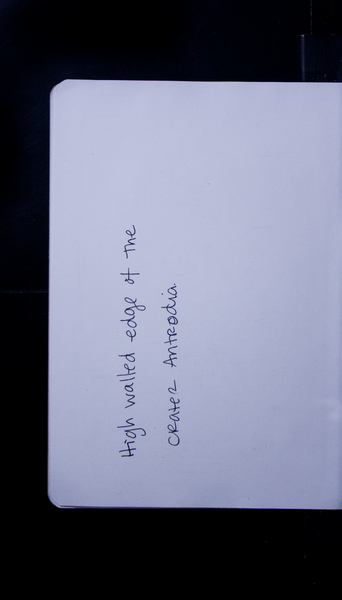 High walled edge of the
CRateR AntRodia.